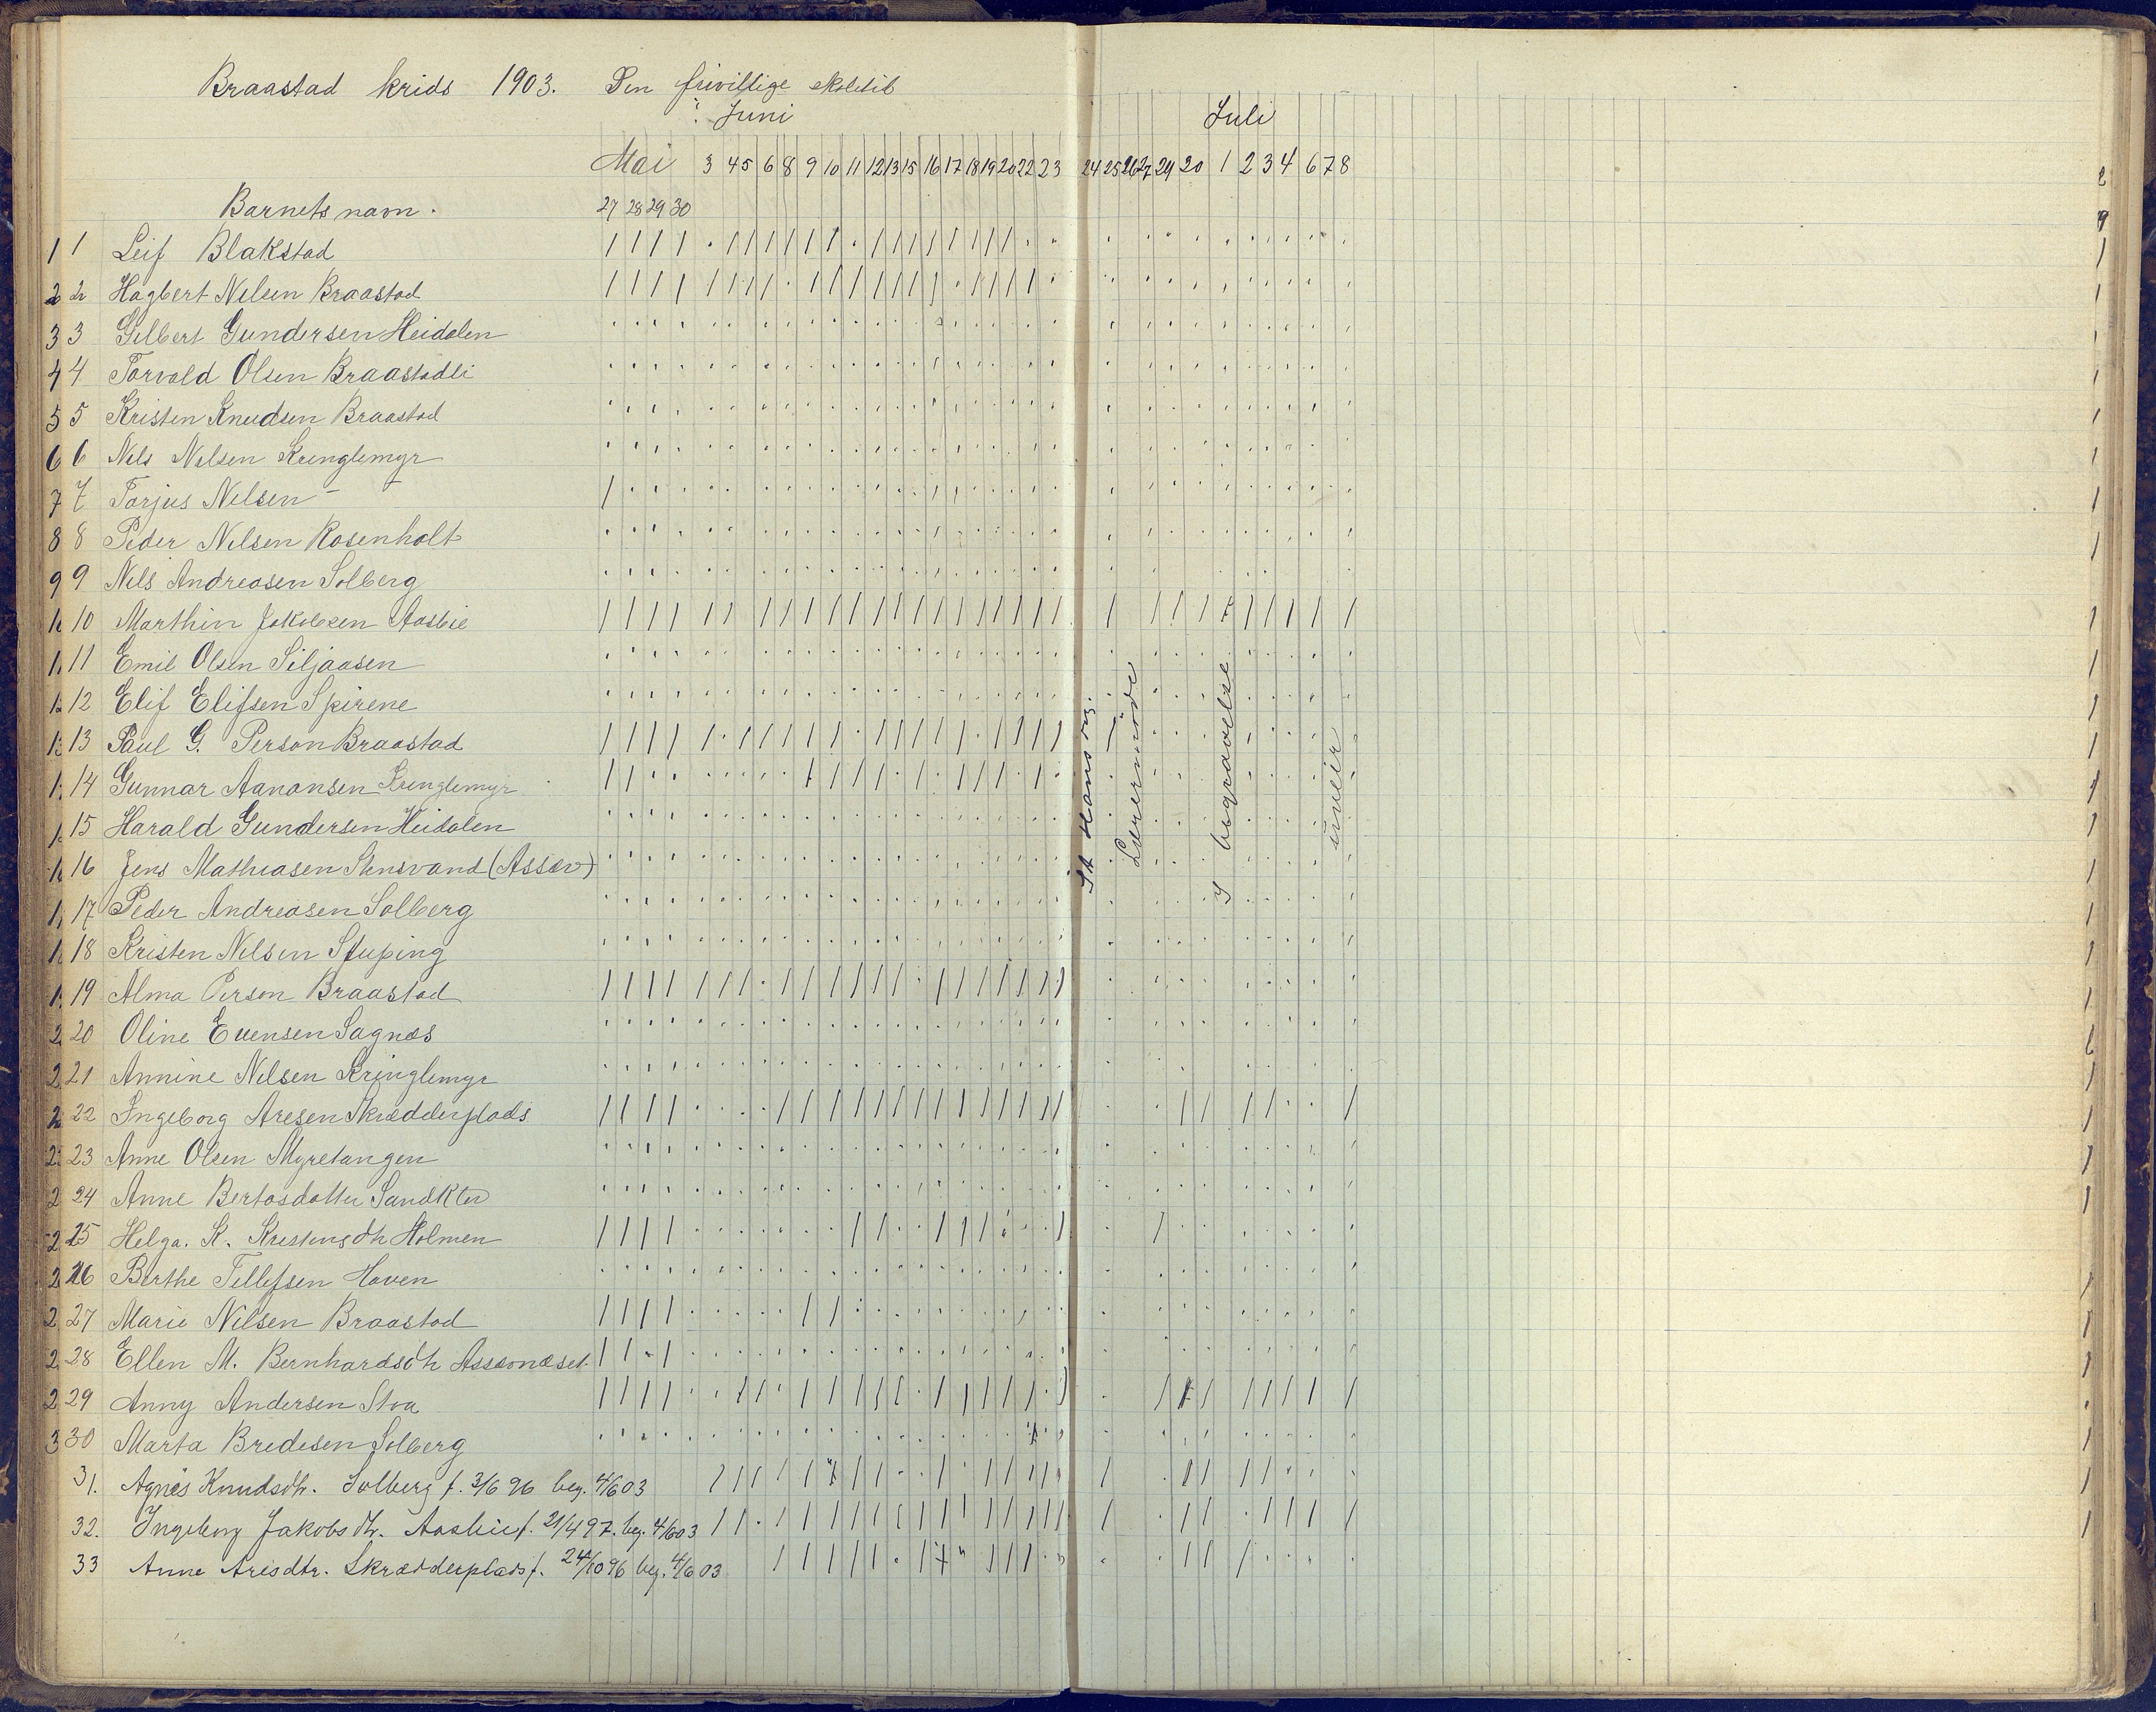 Braastad krids 1903. Den frivillige skoletid
i Juni
Juli
Mai 3 4 5 6 8 9 10 11 12 13 15 16 17 18 19 20 22 23 24 25 26 27 29 30 1 2 3 4 6 7 8
Barnets navn.
27 28 29 30
1 1 Leif Blakstad
2 2 Hagbert Nilsen Braastad
3 3 Gilbert Gundersen Heidalen
4 4 Torvald Olsen Braastadli
5 5 Kristen Knudsen Braastad
6 6 Nils Nilsen Kringlemyr
7 7 Torjus Nilsen -
8 8 Peder Nilsen Rosenholt
9 9 Nils Andreasen Solberg
10 Marthin Jakobsen Aasbie
11 Emil Olsen Siljaasen
12 Elif Elifsen Spirene
13 Paul G. Person Braastad
14 Gunnar Aanonsen Kringlemyr
15 Harald Gundersen Heidalen
16 Jens Mathiasen Stensvand (Assæv)
17 Peder Andreasen Solberg
18 Kristen Nilsen Støping
19 Alma Person Braastad
20 Oline Evensen Sagnæs
21 Annine Nilsen Kringlemyr
22 Ingeborg Aresen Skrædderplads
23 Anne Olsen Myretangen
24 Anne Bertasdatter
25 Helga. K. Kristensdtr Holmen
26 Berthe Tellefsen Haven
27 Marie Nilsen Braastad
28 Ellen M. Bernhardsdtr
29 Anny Andersen Stoa
30 Marta Bredesen Solberg
31. Agnes Knudsdtr. Solberg f. 3/6 96 beg. 4/6 03
32. Ingeborg Jakobsdtr. Aasbie f. 21/4 97. beg. 4/6 03
33 Anne Aresdtr. Skrædderplads f. 24/10 96 beg. 4/6 03
St Hans dag.
Lærermöde
I begravelse
uveir